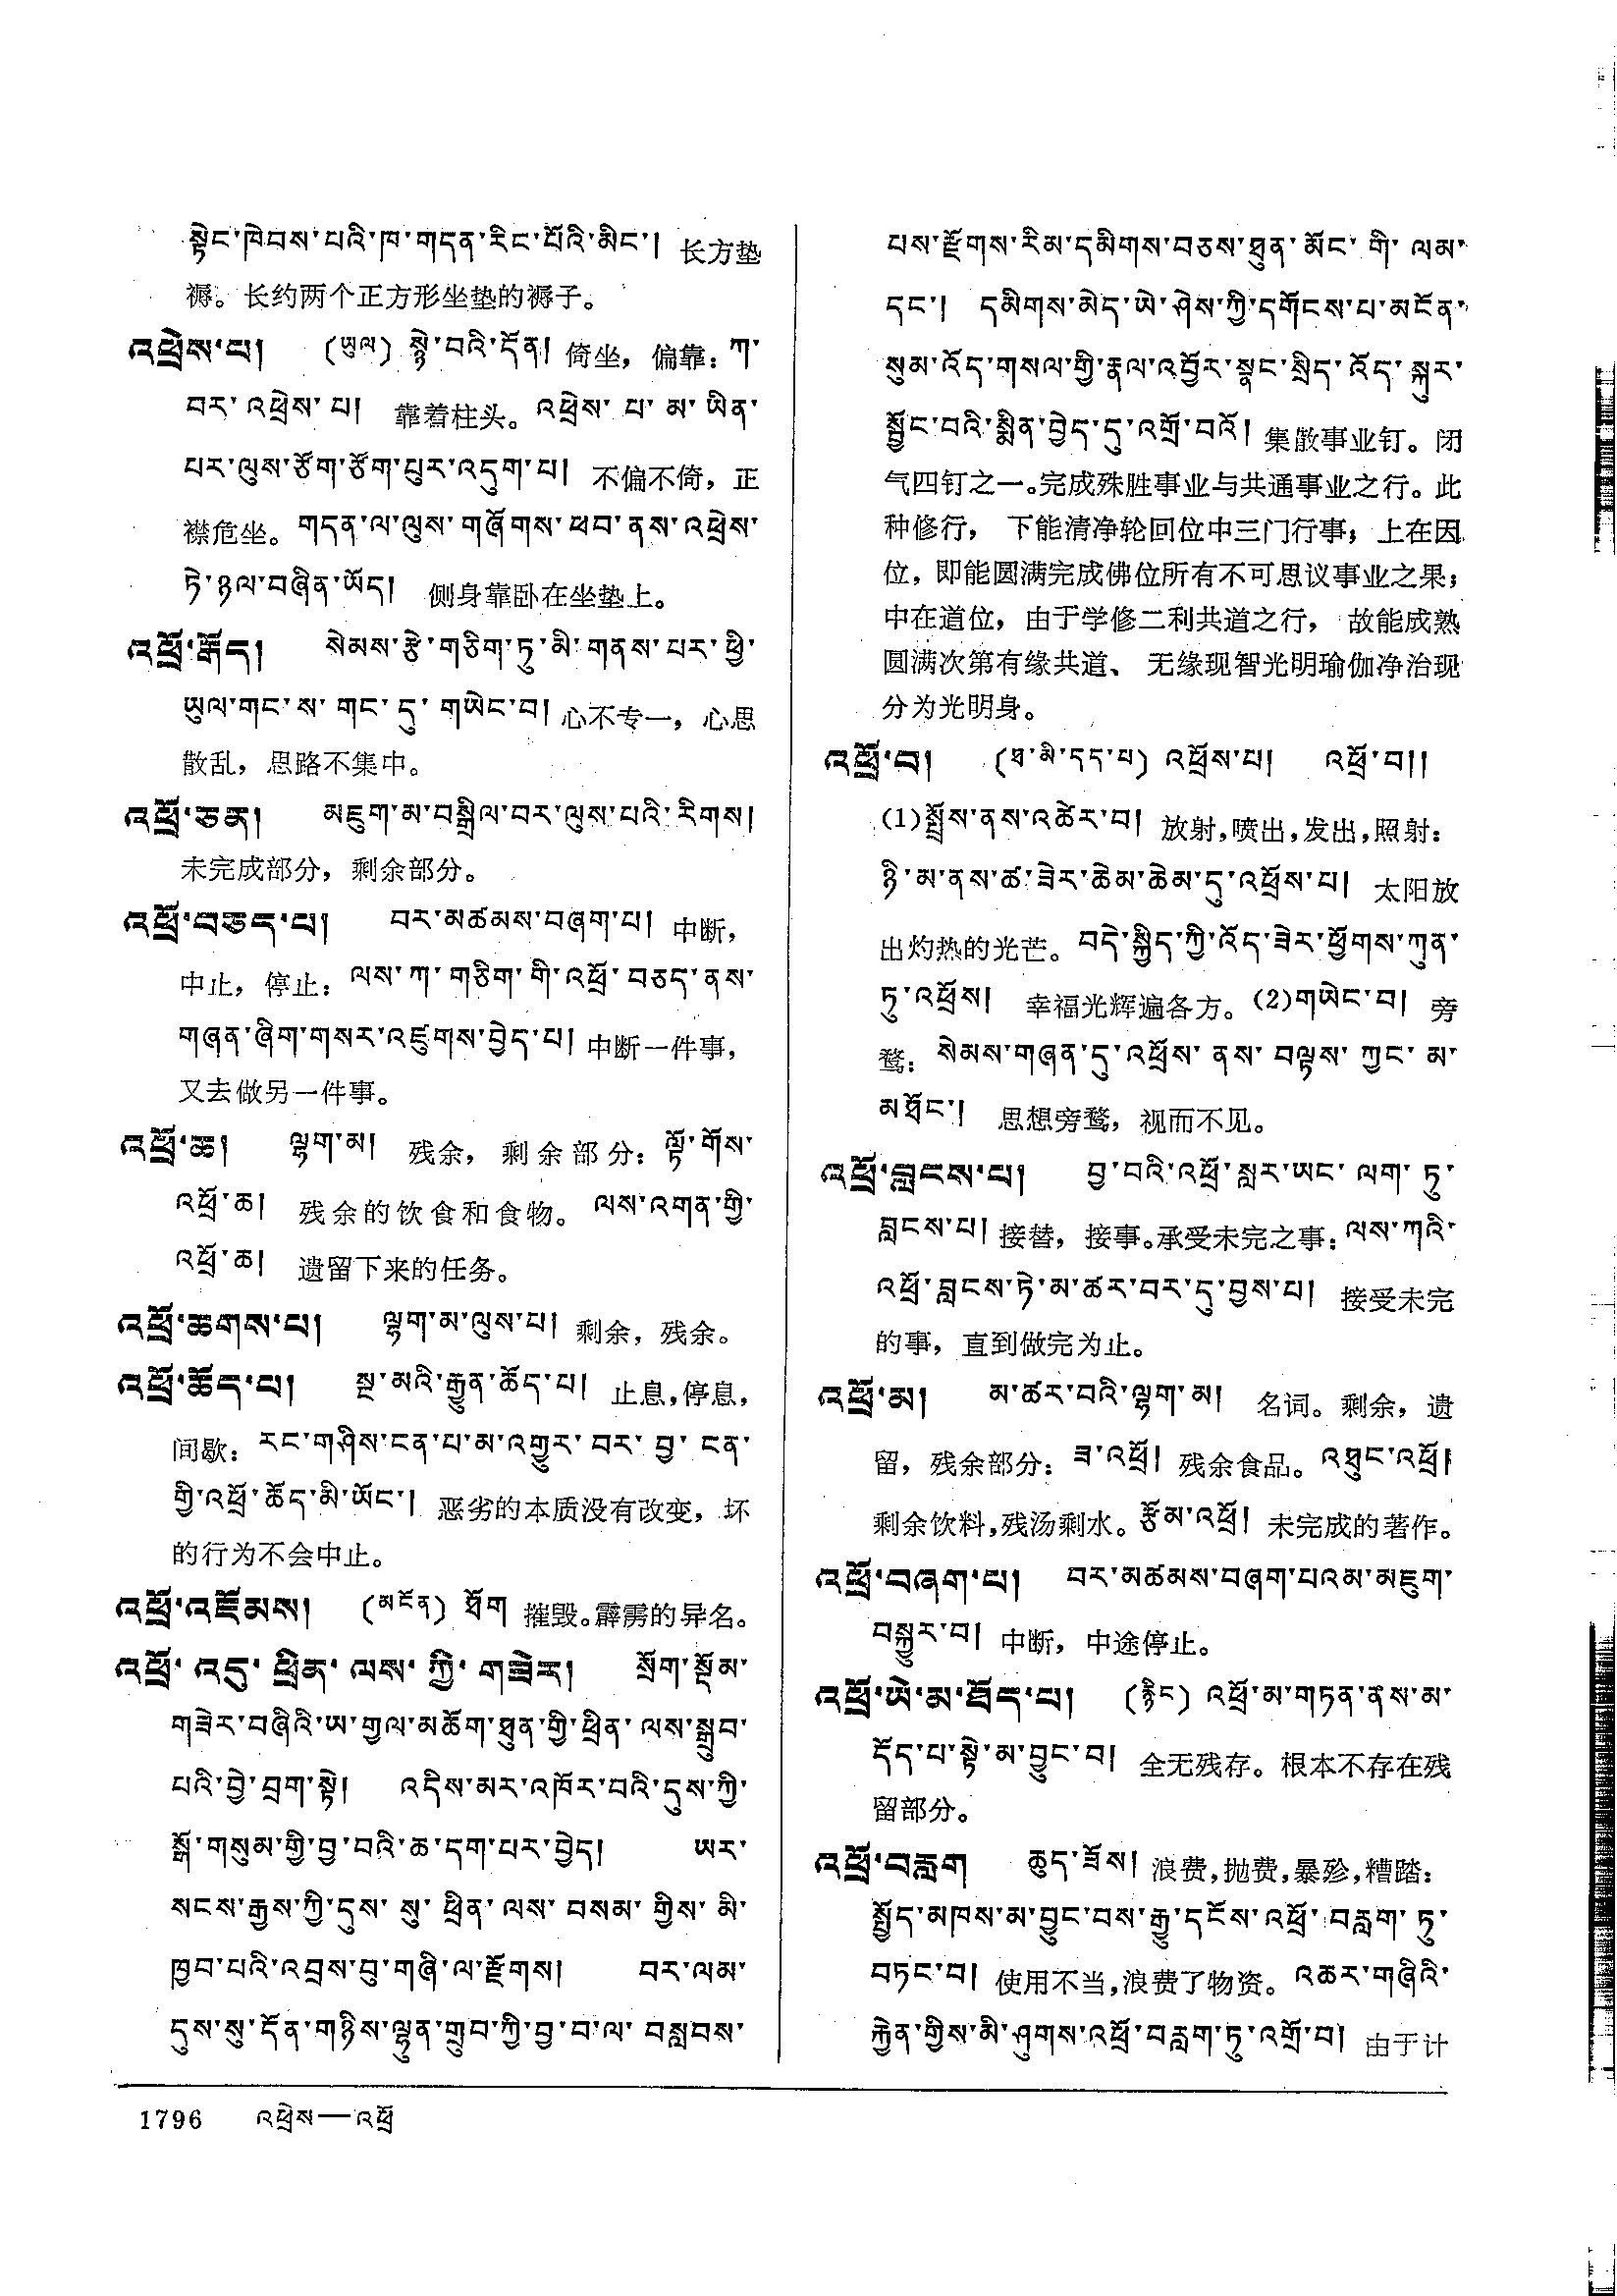 སྟེང་ཁེབས་པའི་ཁ་གདན་རིང་པོའི་མིང་། 长方垫
褥。长约两个正方形坐垫的褥子。
འཕྲེས་པ། (ཡུལ) སྙེ་བའི་དོན། 倚坐，偏靠：ཀ་
བར་འཕྲེས་པ། 靠着柱头。འཕྲེས་པ་མ་ཡིན་
པར་ལུས་ཙོག་ཙོག་པུར་འདུག་པ། 不偏不倚，正
襟危坐。གདན་ལ་ལུས་གཞོགས་ཕབ་ནས་འཕྲེས་
ཏེ་ཉལ་བཞིན་ཡོད། 侧身靠卧在坐垫上。
འཕྲོ་རྒོད། སེམས་རྩེ་གཅིག་ཏུ་མི་གནས་པར་ཕྱི་
ཡུལ་གང་ས་གང་དུ་གཡེང་བ། 心不专一，心思
散乱，思路不集中。
འཕྲོ་ཅན། མཇུག་མ་བསྒྲིལ་བར་ལུས་པའི་རིགས།
未完成部分，剩余部分。
འཕྲོ་བཅད་པ། བར་མཚམས་བཞག་པ། 中断，
中止，停止：ལས་ཀ་གཅིག་གི་འཕྲོ་བཅད་ནས་
གཞན་ཞིག་གསར་འཛུགས་བྱེད་པ། 中断一件事，
又去做另一件事。
འཕྲོ་ཆ། ལྷག་མ། 残余，剩余部分：ལྟོ་གོས་
འཕྲོ་ཆ། 残余的饮食和食物。ལས་འགན་གྱི་
འཕྲོ་ཆ། 遗留下来的任务。
འཕྲོ་ཆགས་པ། ལྷག་མ་ལུས་པ། 剩余，残余。
འཕྲོ་ཆོད་པ། སྔ་མའི་རྒྱུན་ཆོད་པ། 止息，停息，
间歇：རང་གཤིས་ངན་པ་མ་འགྱུར་བར་བྱ་ངན་
གྱི་འཕྲོ་ཆོད་མི་ཡོང་། 恶劣的本质没有改变，坏
的行为不会中止。
འཕྲོ་འཇོམས། (མངོན) ཐོག 摧毁。霹雳的异名。
འཕྲོ་འདུ་ཕྲིན་ལས་ཀྱི་གཟེར། སྲོག་སྡོམ་
གཟེར་བཞིའི་ཡ་གྱལ་མཆོག་ཐུན་གྱི་ཕྲིན་ལས་སྒྲུབ་
པའི་བྱེ་བྲག་སྟེ། འདིས་མར་འཁོར་བའི་དུས་ཀྱི་
སྒོ་གསུམ་གྱི་བྱ་བའི་ཆ་དག་པར་བྱེད། ཡར་
སངས་རྒྱས་ཀྱི་དུས་སུ་ཕྲིན་ལས་བསམ་གྱིས་མི་
ཁྱབ་པའི་འབྲས་བུ་གཞི་ལ་རྫོགས། བར་ལམ་
དུས་སུ་དོན་གཉིས་ལྷུན་གྲུབ་ཀྱི་བྱ་བ་ལ་བསླབས་
པས་རྫོགས་རིམ་དམིགས་བཅས་ཐུན་མོང་གི་ལམ་
དང་། དམིགས་མེད་ཡེ་ཤེས་ཀྱི་དགོངས་པ་མངོན་
སུམ་འོད་གསལ་གྱི་རྣལ་འབྱོར་སྣང་སྲིད་འོད་སྐུར་
སྦྱོང་བའི་སྨིན་བྱེད་དུ་འགྲོ་བའོ། 集散事业钉。闭
气四钉之一。完成殊胜事业与共通事业之行。此
种修行，下能清净轮回位中三门行事；上在因
位，即能圆满完成佛位所有不可思议事业之果；
中在道位，由于学修二利共道之行，故能成熟
圆满次第有缘共道、无缘现智光明瑜伽净治现
分为光明身。
འཕྲོ་བ། (ཐ་མི་དད་པ) འཕྲོས་པ། འཕྲོ་བ།།
(1)སྤྲོས་ནས་འཚེར་བ། 放射，喷出，发出，照射：
ཉི་མ་ནས་ཚ་ཟེར་ཆེམ་ཆེམ་དུ་འཕྲོས་པ། 太阳放
出灼热的光芒。བདེ་སྐྱིད་ཀྱི་འོད་ཟེར་ཕྱོགས་ཀུན་
ཏུ་འཕྲོས། 幸福光辉遍各方。(2)གཡེང་བ། 旁
骛：སེམས་གཞན་དུ་འཕྲོས་ནས་བལྟས་ཀྱང་མ་
མཐོང་། 思想旁骛，视而不见。
འཕྲོ་བླངས་པ། བྱ་བའི་འཕྲོ་སླར་ཡང་ལག་ཏུ་
བླངས་པ། 接替，接事。承受未完之事：ལས་ཀའི་
འཕྲོ་བླངས་ཏེ་མ་ཚར་བར་དུ་བྱས་པ། 接受未完
的事，直到做完为止。
འཕྲོ་མ། མ་ཚར་བའི་ལྷག་མ། 名词。剩余，遗
留，残余部分：ཟ་འཕྲོ། 残余食品。འཐུང་འཕྲོ།
剩余饮料，残汤剩水。རྩོམ་འཕྲོ། 未完成的著作。
འཕྲོ་བཞག་པ། བར་མཚམས་བཞག་པའམ་མཇུག་
བསྐྱུར་བ། 中断，中途停止。
འཕྲོ་ཡེ་མ་ཐོད་པ། (རྙིང) འཕྲོ་མ་གཏན་ནས་མ་
དོད་པ་སྟེ་མ་བྱུང་བ། 全无残存。根本不存在残
留部分。
འཕྲོ་བརླག ཆུད་ཟོས། 浪费，抛费，暴殄，糟踏：
སྤྱོད་མཁས་མ་བྱུང་བས་རྒྱུ་དངོས་འཕྲོ་བརླག་ཏུ་
བཏང་བ། 使用不当，浪费了物资。འཆར་གཞིའི་
རྐྱེན་གྱིས་མི་ཤུགས་འཕྲོ་བརླག་ཏུ་འགྲོ་བ། 由于计
1796 འཕྲེས—འཕྲོ